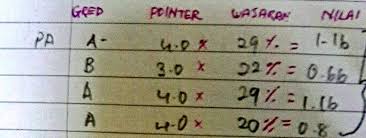 GRED POINTER WAJARAN NILAI
PA A- 4.0 × 29 % = 1.16
B 3.0 × 22 % = 0.66
A 4.0 × 29 % = 1.16
A 4.0 × 20 % = 0.8